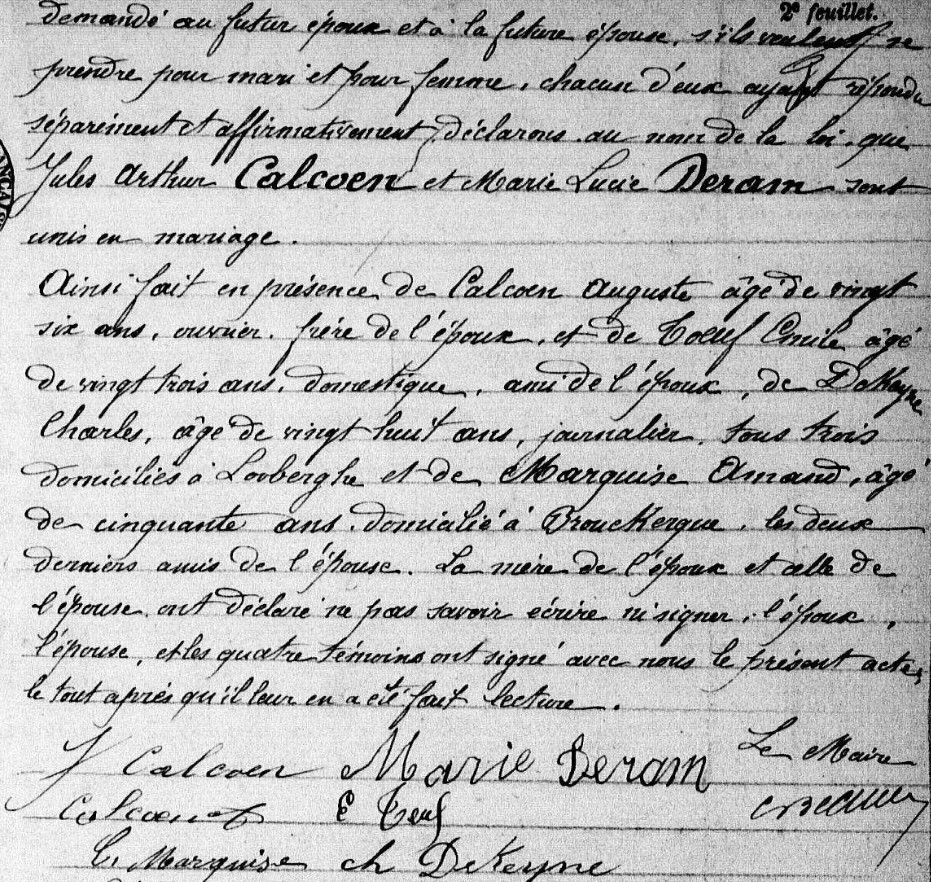 2e fouillet.
demandé au futur époux et à la future épouse, s'ils veulent se
prendre pour mari et pour femme, chacun d'eux ayant répondu
séparément et affirmativement, déclarons au nom de la loi, que
Jules Arthur Calcoen et Marie Lucie Deram sont
unis en mariage.
Ainsi fait en présence de Calcoen Auguste âgé de vingt
six ans, ouvrier, frère de l'époux, et de Toeuf Emile âgé
de vingt trois ans, domestique, ami de l'époux, de DeKeyne
Charles, âgé de vingt huit ans, journalier, tous trois
domiciliés à Looberghe et de Marquise Amand, âgé
de cinquante ans, domicilié à Brouckerque, les deux
derniers amis de l'épouse. La mère de l'époux et celle de
l'épouse ont déclaré ne pas savoir écrire ni signer; l'époux,
l'épouse, et les quatre témoins ont signé avec nous le présent acte,
le tout après qu'il leur en a été fait lecture.
J Calcoen Marie Deram Le Maire
Calcoen E Teuf
Marquise ch DeKeyne